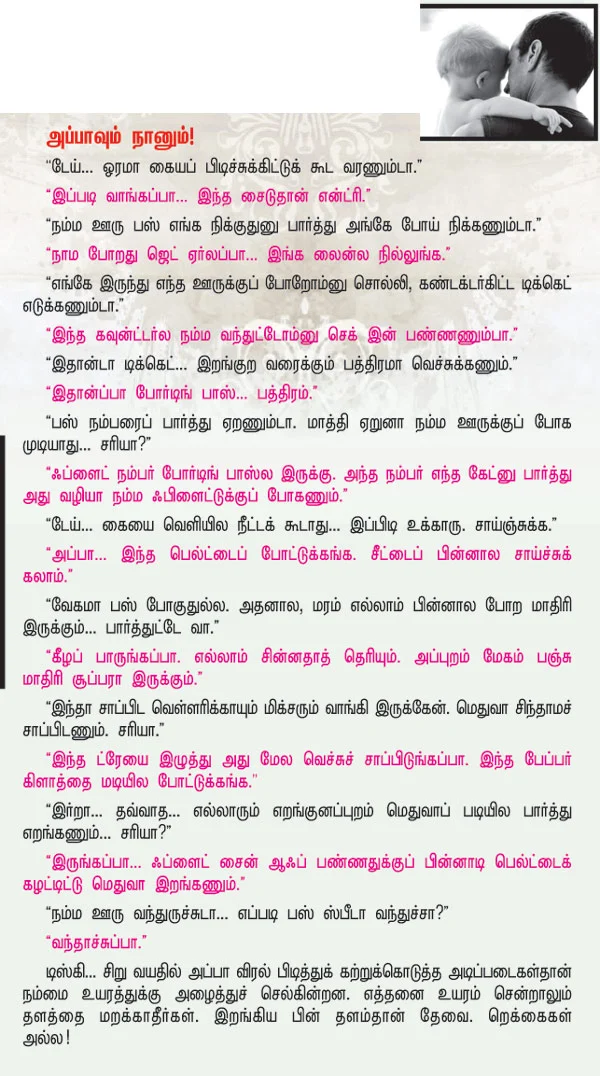 அப்பாவும் நானும்!
“டேய்... ஓரமா கையப் பிடிச்சுக்கிட்டுக் கூட வரணும்டா.”
“இப்படி வாங்கப்பா... இந்த சைடுதான் என்ட்ரி.”
“நம்ம ஊரு பஸ் எங்க நிக்குதுனு பார்த்து அங்கே போய் நிக்கணும்டா.”
“நாம போறது ஜெட் ஏர்லப்பா... இங்க லைன்ல நில்லுங்க.”
“எங்கே இருந்து எந்த ஊருக்குப் போறோம்னு சொல்லி, கண்டக்டர்கிட்ட டிக்கெட்
எடுக்கணும்டா.”
“இந்த கவுன்ட்டர்ல நம்ம வந்துட்டோம்னு செக் இன் பண்ணணும்பா.”
“இதான்டா டிக்கெட்... இறங்குற வரைக்கும் பத்திரமா வெச்சுக்கணும்.”
“இதான்ப்பா போர்டிங் பாஸ்... பத்திரம்.”
“பஸ் நம்பரைப் பார்த்து ஏறணும்டா. மாத்தி ஏறுனா நம்ம ஊருக்குப் போக
முடியாது... சரியா?”
“ஃப்ளைட் நம்பர் போர்டிங் பாஸ்ல இருக்கு. அந்த நம்பர் எந்த கேட்னு பார்த்து
அது வழியா நம்ம ஃபிளைட்டுக்குப் போகணும்.”
“டேய்... கையை வெளியில நீட்டக் கூடாது... இப்பிடி உக்காரு. சாய்ஞ்சுக்க.”
“அப்பா... இந்த பெல்ட்டைப் போட்டுக்கங்க. சீட்டைப் பின்னால சாய்ச்சுக்
கலாம்.”
“வேகமா பஸ் போகுதுல்ல. அதனால, மரம் எல்லாம் பின்னால போற மாதிரி
இருக்கும்... பார்த்துட்டே வா.”
“கீழப் பாருங்கப்பா. எல்லாம் சின்னதாத் தெரியும். அப்புறம் மேகம் பஞ்சு
மாதிரி சூப்பரா இருக்கும்.”
“இந்தா சாப்பிட வெள்ளரிக்காயும் மிக்சரும் வாங்கி இருக்கேன். மெதுவா சிந்தாமச்
சாப்பிடணும். சரியா.”
“இந்த ட்ரேயை இழுத்து அது மேல வெச்சுச் சாப்பிடுங்கப்பா. இந்த பேப்பர்
கிளாத்தை மடியில போட்டுக்கங்க.”
“இர்றா... தவ்வாத... எல்லாரும் எறங்குனப்புறம் மெதுவாப் படியில பார்த்து
எறங்கணும்... சரியா?”
“இருங்கப்பா... ஃப்ளைட் சைன் ஆஃப் பண்ணதுக்குப் பின்னாடி பெல்ட்டைக்
கழட்டிட்டு மெதுவா இறங்கணும்.”
“நம்ம ஊரு வந்துருச்சுடா... எப்படி பஸ் ஸ்பீடா வந்துச்சா?”
“வந்தாச்சுப்பா.”
டிஸ்கி... சிறு வயதில் அப்பா விரல் பிடித்துக் கற்றுக்கொடுத்த அடிப்படைகள்தான்
நம்மை உயரத்துக்கு அழைத்துச் செல்கின்றன. எத்தனை உயரம் சென்றாலும்
தளத்தை மறக்காதீர்கள். இறங்கிய பின் தளம்தான் தேவை. றெக்கைகள்
அல்ல!